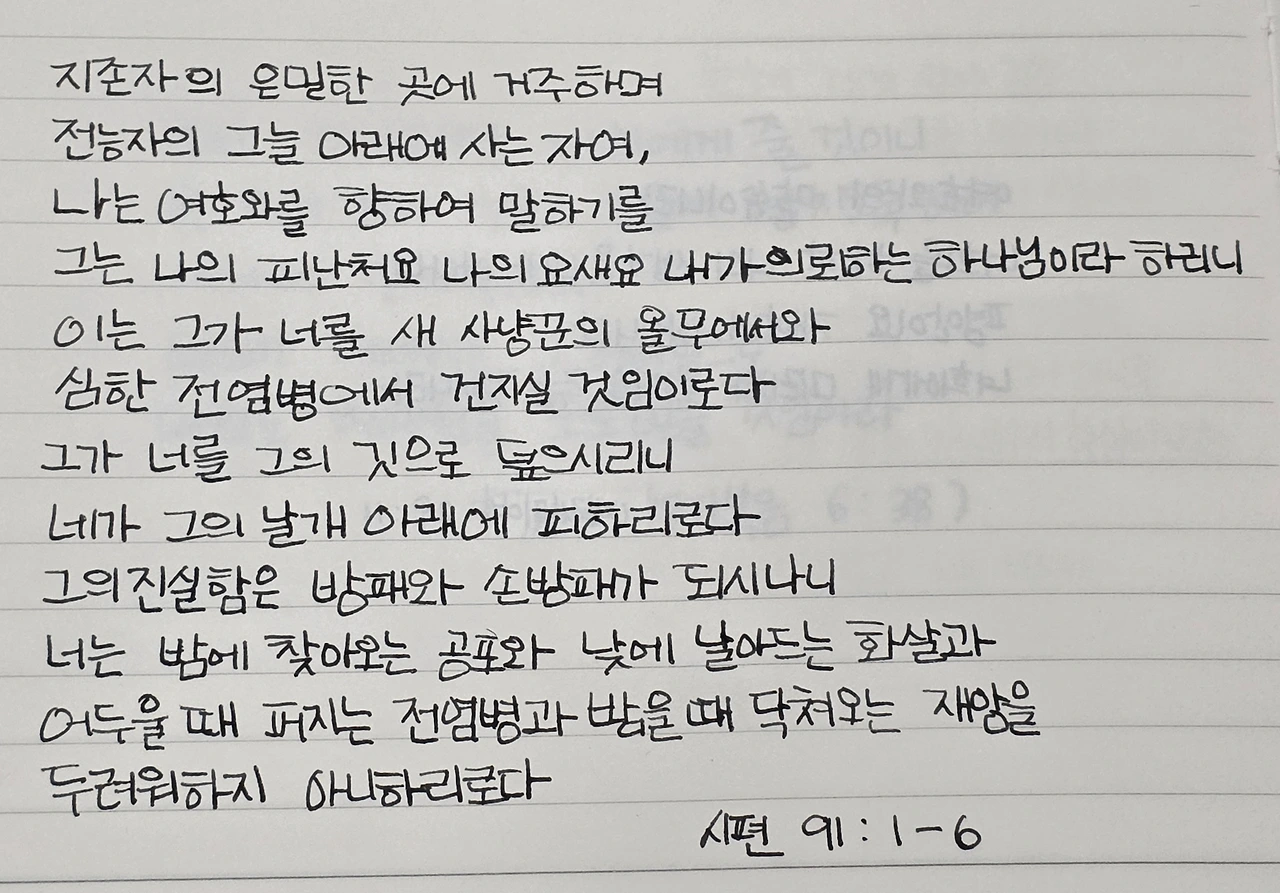 지존자의 은밀한 곳에 거주하며
전능자의 그늘 아래에 사는 자여,
나는 여호와를 향하여 말하기를
그는 나의 피난처요 나의 요새요 내가 의뢰하는 하나님이라 하리니
이는 그가 너를 새 사냥꾼의 올무에서와
심한 전염병에서 건지실 것임이로다
그가 너를 그의 깃으로 덮으시리니
네가 그의 날개 아래에 피하리로다
그의 진실함은 방패와 손방패가 되시나니
너는 밤에 찾아오는 공포와 낮에 날아드는 화살과
어두울 때 퍼지는 전염병과 밝을 때 닥쳐오는 재앙을
두려워하지 아니하리로다
시편 91 : 1 - 6